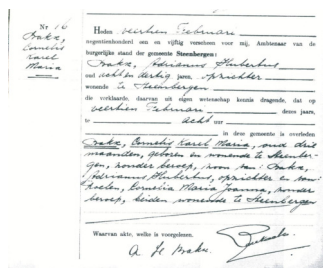 Nr 16
Bakx,
Cornelis
Karel
Maria
Heden veertien Februari
negentienhonderd een en vijftig verscheen voor mij, Ambtenaar van de
burgerlijke stand der gemeente Steenbergen:
Bakx, Adrianus Hubertus
oud acht en dertig jaren, opzichter
wonende te Steenbergen
die verklaarde, daarvan uit eigen wetenschap kennis dragende, dat op
veertien Februari dezes jaars,
te acht uur
in deze gemeente is overleden
Bakx, Cornelis Karel Maria, oud drie
maanden, geboren en wonende te Steenber-
gen, zonder beroep, zoon van: Bakx,
Adrianus Hubertus, opzichter en van:
Cornelia Maria Joanna, zonder
beroep, beiden wonende te Steenbergen
Waarvan akte, welke is voorgelezen.
A H Bakx.